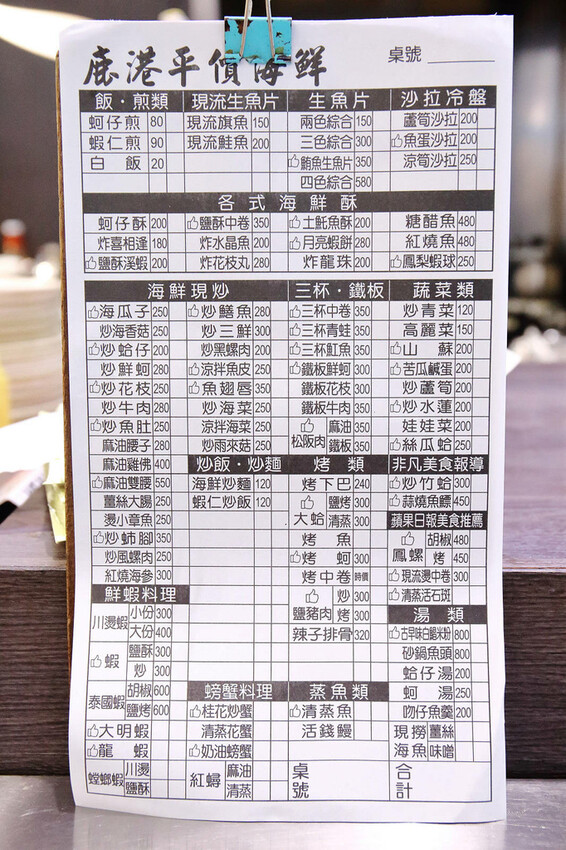 鹿港平價海鮮 桌號
飯·煎類 現流生魚片 生魚片 沙拉冷盤
蚵仔煎 80 現流旗魚 150 兩色綜合 150 蘆筍沙拉 200
蝦仁煎 90 現流鮭魚 200 三色綜合 300 魚蛋沙拉 200
白飯 20 鮪魚生魚片 350 涼筍沙拉 250
四色綜合 580
各式海鮮酥
蚵仔酥 200 鹽酥中卷 350 土魠魚酥 200 糖醋魚 480
炸喜相逢 180 炸水晶魚 200 月亮蝦餅 280 紅燒魚 480
鹽酥溪蝦 200 炸花枝丸 280 炸龍珠 200 鳳梨蝦球 250
海鮮現炒 三杯·鐵板 蔬菜類
海瓜子 250 炒鱔魚 280 三杯中卷 350 炒青菜 120
炒海香菇 250 炒三鮮 300 三杯青蛙 350 高麗菜 150
炒蛤仔 200 炒黑螺肉 200 三杯魟魚 350 山蘇 200
炒鮮蚵 280 涼拌魚皮 250 鐵板鮮蚵 300 苦瓜鹹蛋 200
炒花枝 250 魚翅唇 350 鐵板花枝 300 炒蘆筍 200
炒牛肉 280 炒海菜 250 鐵板牛肉 350 炒水蓮 200
炒魚肚 250 涼拌海菜 250 松阪肉 麻油 350 娃娃菜 200
麻油腰子 280 炒雨來菇 250 鐵板 350 絲瓜蛤 250
麻油雞佛 400 炒飯·炒麵 烤類 非凡美食報導
麻油雙腰 550 海鮮炒麵 120 烤下巴 240 炒竹蛤 300
薑絲大腸 250 蝦仁炒飯 120 大蛤 鹽烤 300 蒜燒魚鰾 450
燙小章魚 250 清蒸 300 蘋果日報美食推薦
炒蛳腳 350 烤魚 鳳螺 胡椒 480
炒風螺肉 250 烤蚵 300 烤 450
紅燒海參 300 烤中卷 時價 現流燙中卷 300
鮮蝦料理 鹽豬肉 炒 300 清蒸活石斑
川燙蝦 小份 300 烤 300 湯類
大份 400 辣子排骨 320 古早味白鯧米粉 800
蝦 鹽酥 300 砂鍋魚頭 800
炒 300 蛤仔湯 200
泰國蝦 胡椒 600 螃蟹料理 蒸魚類 蚵湯 250
鹽烤 600 桂花炒蟹 清蒸魚 吻仔魚羹 200
大明蝦 清蒸花蟹 活錢鰻 現撈海魚 薑絲
龍蝦 奶油螃蟹 味噌
螳螂蝦 川燙 紅蟳 麻油 桌號 合計
鹽酥 清蒸